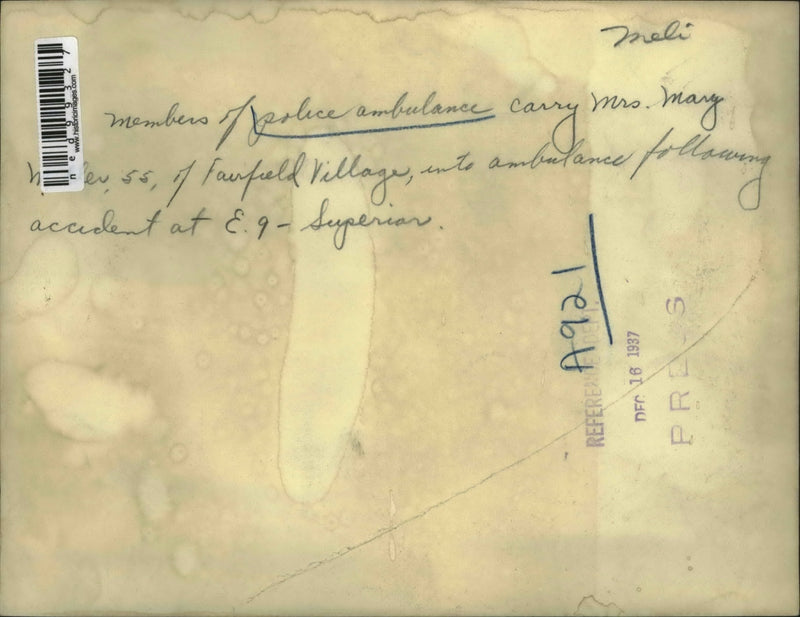 Meli
Members of police ambulance carry Mrs. Mary
55, of Fairfield Village, into ambulance following
accident at E. 9 - Superior.
A921
REFERENCE DEPT.
DEC 16 1937
PRESS
ned99327
www.historicimages.com